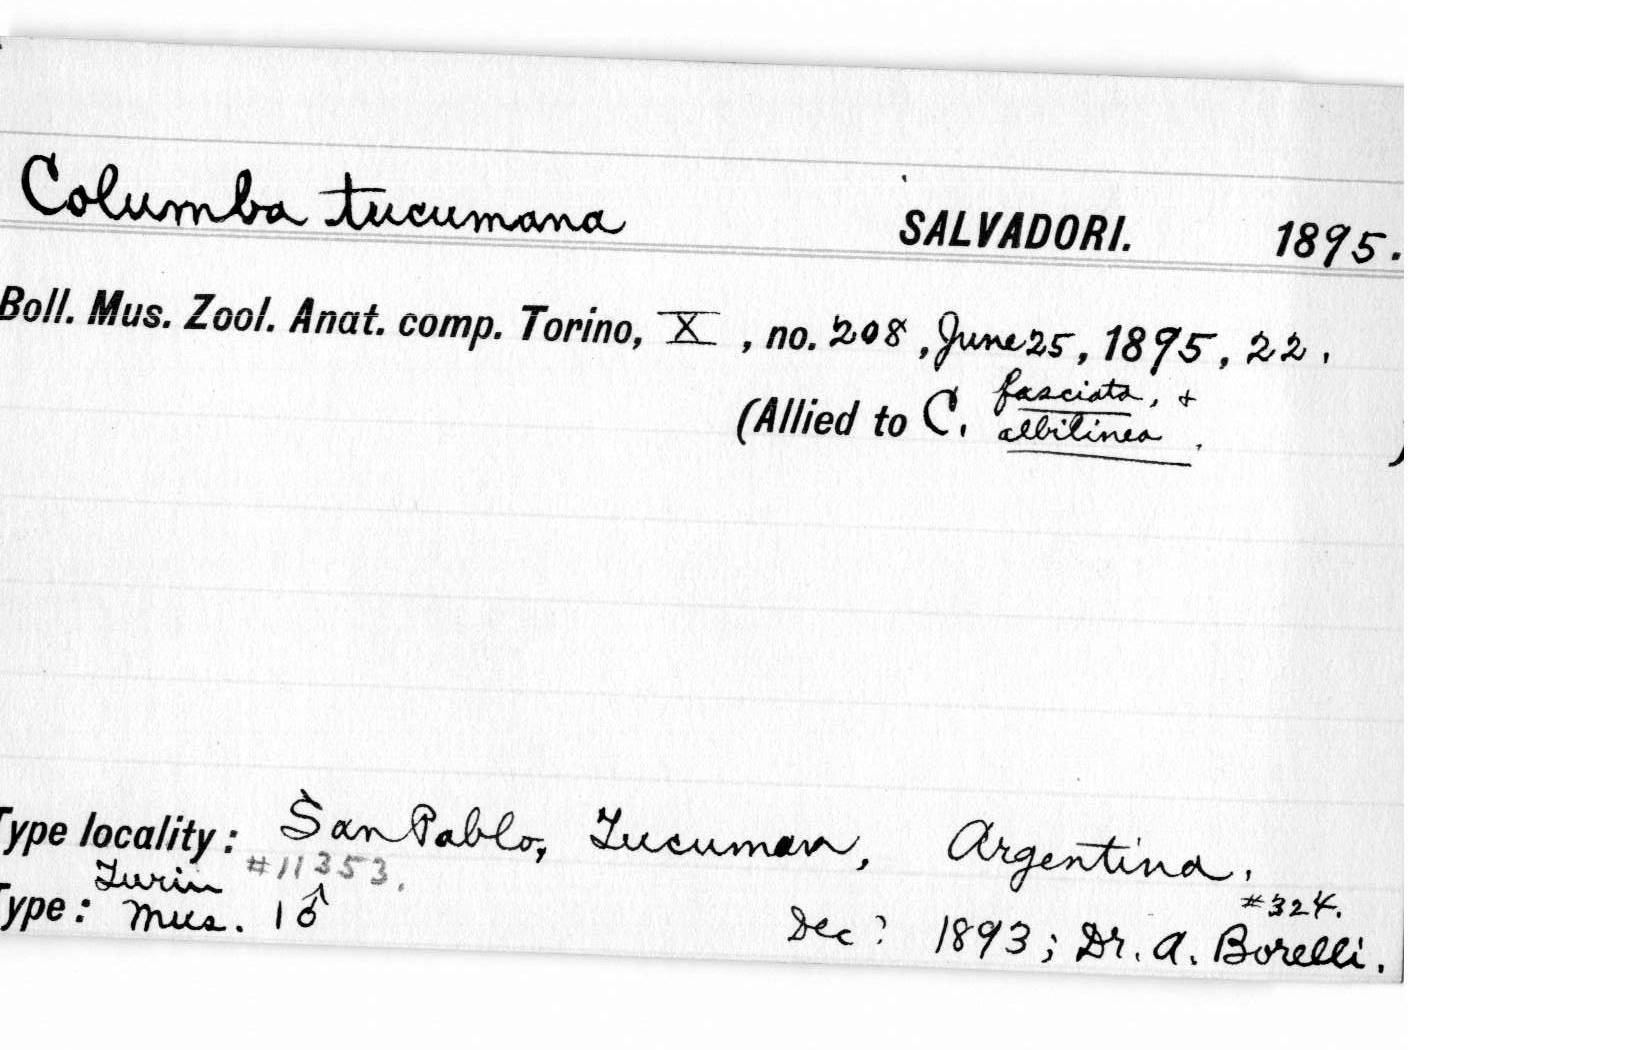 Columba tucumana SALVADORI. 1895.
Boll. Mus. Zool. Anat. comp. Torino, X, no. 208, June 25, 1895, 22.
(Allied to C. fasciata, +
albilinea. )
Type locality: San Pablo, Tucuman, Argentina.
Turin #11353. #324.
Type: Mus. 1♂ Dec? 1893; Dr. A. Borelli.